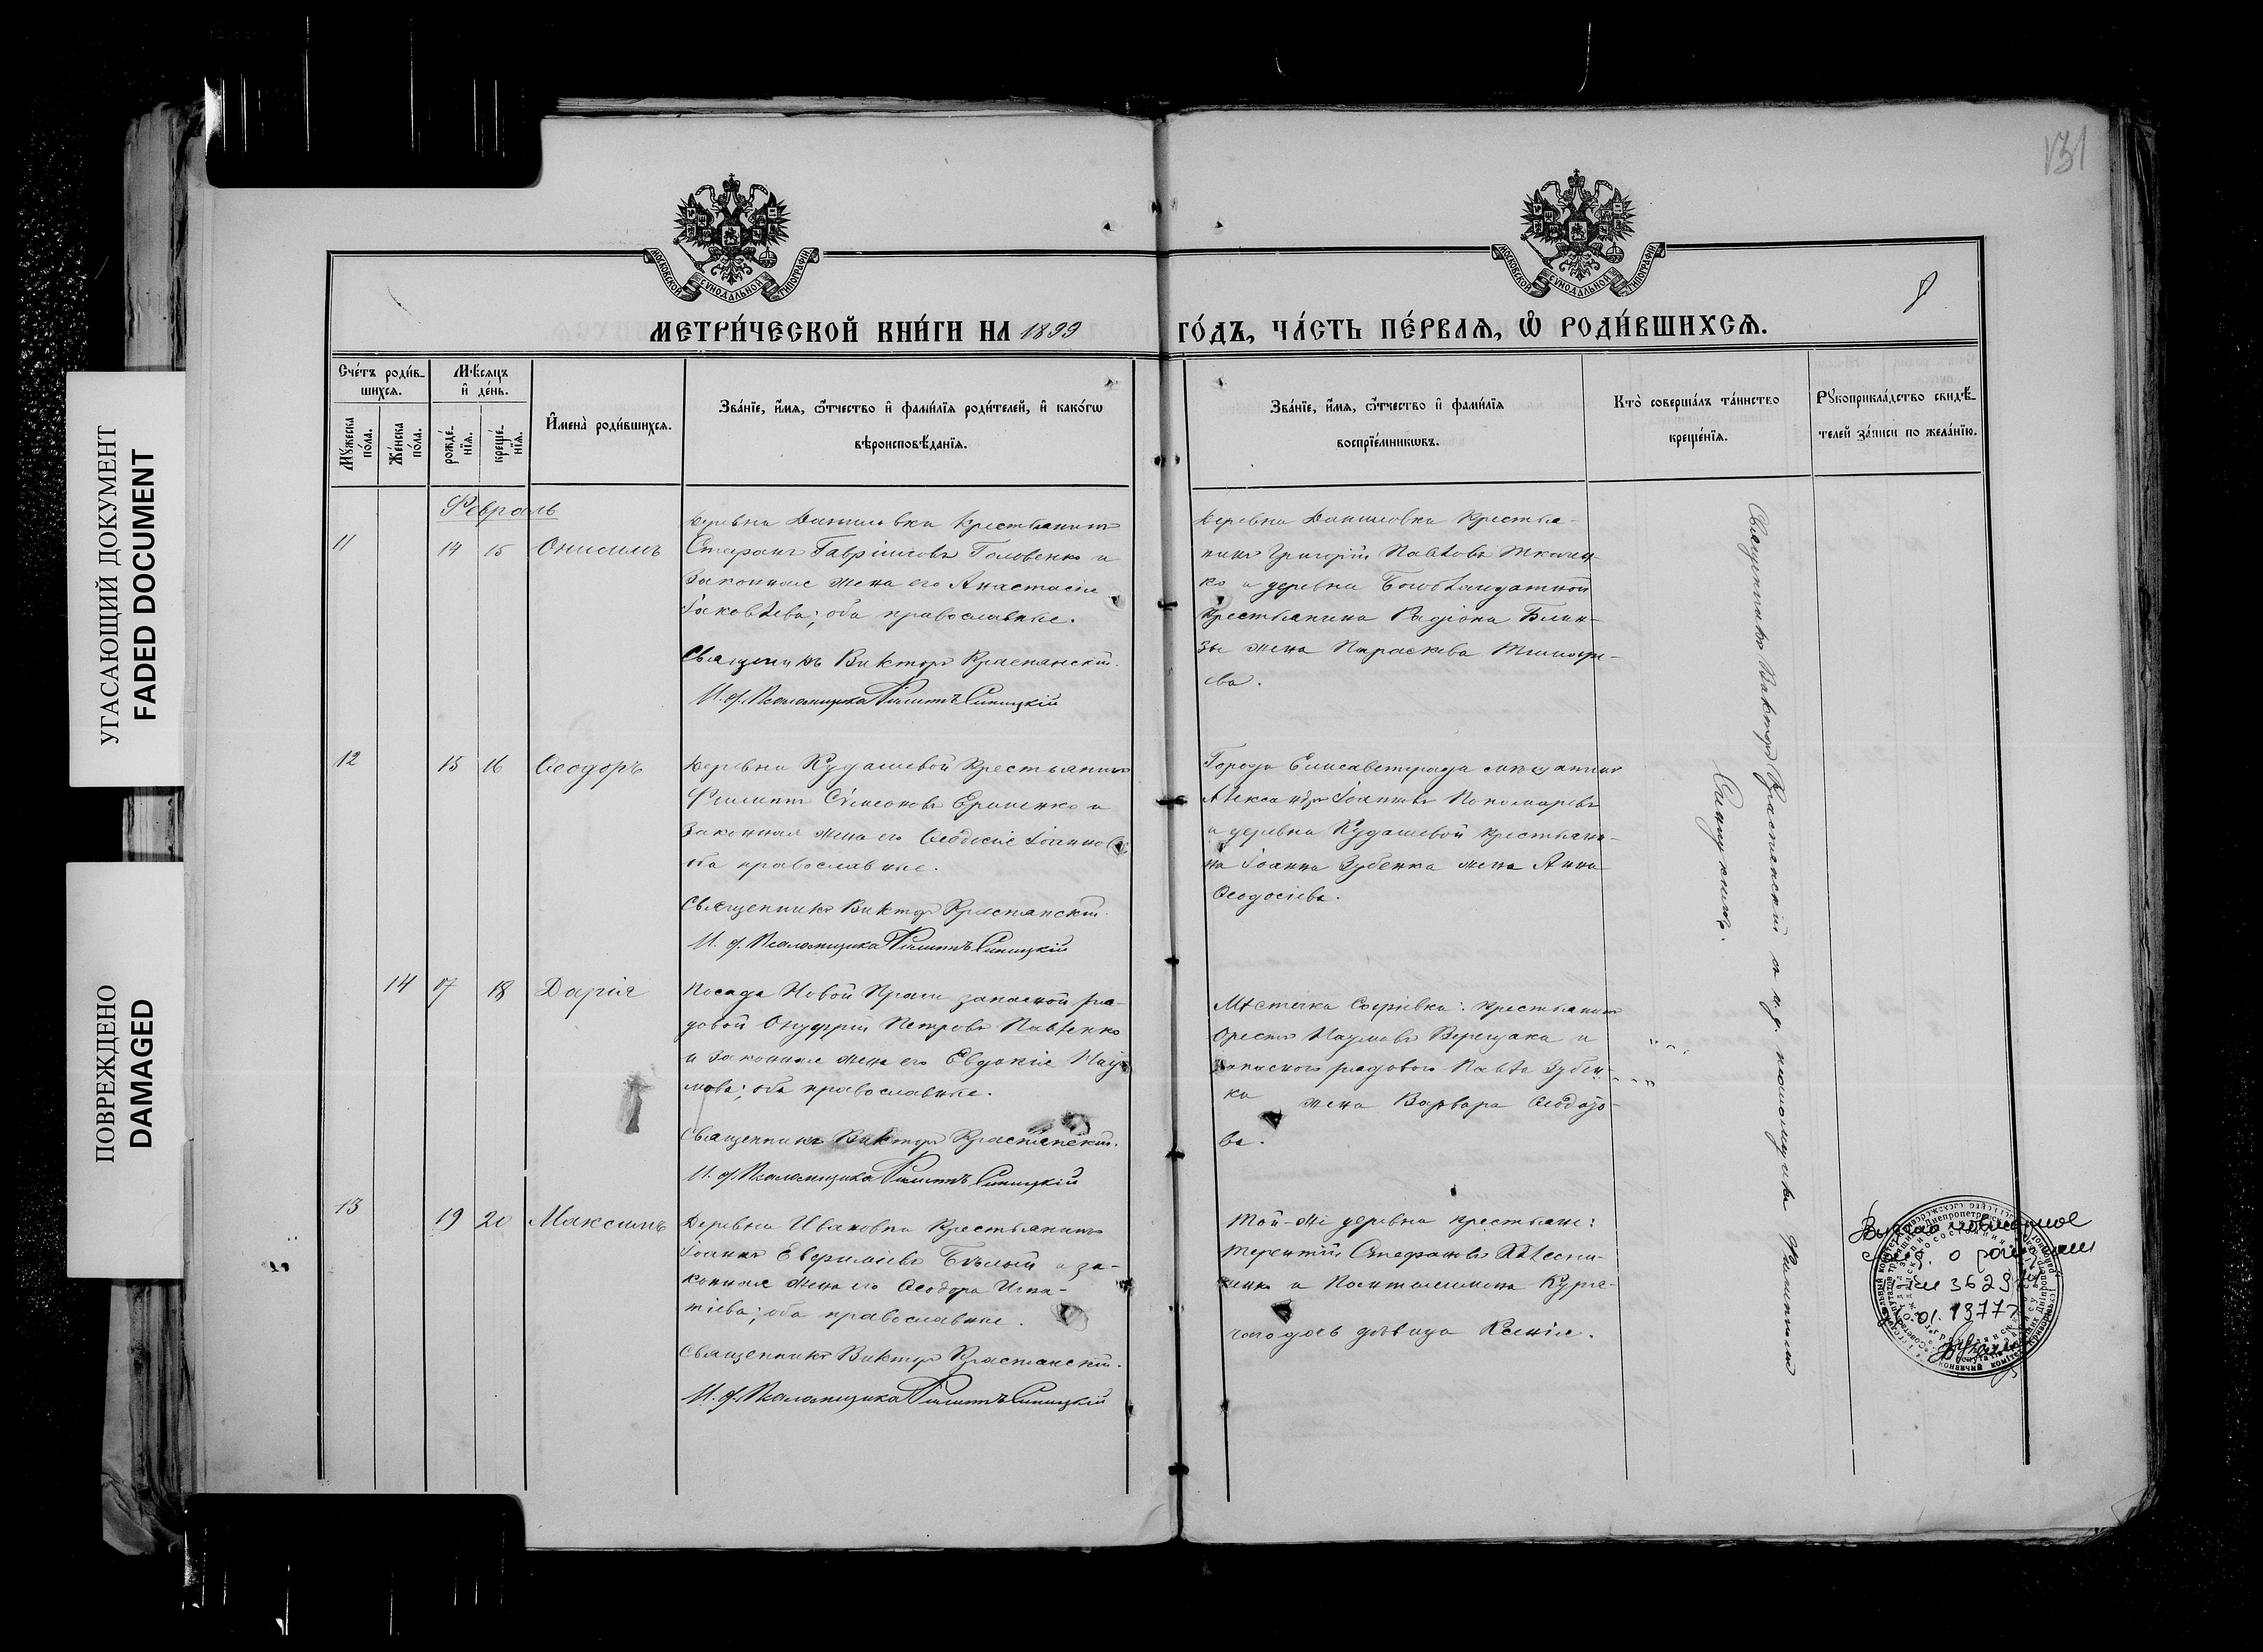 УГАСАЮЩИЙ ДОКУМЕНТ
FADED DOCUMENT
ПОВРЕЖДЕНО
DAMAGED
131
МОСКОВСКОЙ СѴНОДАЛЬНОЙ ТИПОГРАФІИ
МОСКОВСКОЙ СѴНОДАЛЬНОЙ ТИПОГРАФІИ
МЕТРИ́ЧЕСКОЙ КНИ́ГИ НА 1899
ГО́ДЪ, ЧА́СТЬ ПЕ́РВАѦ, Ѡ҆ РОДИ́ВШИХСѦ.
Сче́тъ роди́в-
шихсѧ.
Мꙋ́жеска
по́ла.
Же́нска
по́ла.
Мѣ́сѧцъ
и҆ де́нь.
рожде́-
нїѧ.
креще́-
нїѧ.
И҆мена̀ роди́вшихсѧ.
Зва́нїе, и҆́мѧ, ѻ҆́тчество и҆ фами́лїѧ роди́телей, и҆ како́гѡ
вѣроисповѣ́данїѧ.
Зва́нїе, и҆́мѧ, ѻ҆́тчество и҆ фами́лїѧ
воспрїе́мникѡвъ.
Кто̀ соверша́лъ та́инство
креще́нїѧ.
Рꙋкоприкла́дство свидѣ́-
телей за́писи по жела́нїю.
Февраль
11
14 15 Онисимъ
Деревни Даниловки Крестьянинъ
Стефанъ Гавріиловъ Головенко и
Законная жена его Анастасія
Іаковлева; оба православные.
Священникъ Викторъ Краснянскій.
И. д. Псаломщика Филиппъ Синицкій
Деревни Даниловки Крестья-
нинъ Григорій Павловъ Ткачен-
ко и деревни Благодатной
Крестьянина Родіона
жена Параскева Тимофе-
ева.
12
15 16 Ѳеодоръ
Деревни Кудашевой Крестьянинъ
Филиппъ Сѵмеоновъ Еременко и
Законная жена его Ѳеодосія Іоаннова;
оба православные.
Священникъ Викторъ Краснянскій.
И. д. Псаломщика Филиппъ Синицкій
Города Елисаветграда мѣщанинъ
Александръ Іоанновъ Пономаревъ
и деревни Кудашевой крестьяни-
на Іоанна Зубенка жена Анна
Ѳеодосіева.
14 17 18 Дарія
Посада Новой Праги запасной ря-
довой Онуфрій Петровъ Павленко
и законная жена его Евдокія Нау-
мова; оба православные.
Священникъ Викторъ Краснянскій.
И. д. Псаломщика Филиппъ Синицкій
Мѣстечка Софіевки: Крестьянинъ
Орестъ Наумовъ Верещака и
Запасного рядового Павла Зубен-
ка жена Варвара
ва.
13
19 20 Максимъ
Деревни Ивановки Крестьянинъ
Іоаннъ Евфиміевъ Бѣлый и за-
конная жена его Ѳеодора Игна-
тіева; оба православные.
Священникъ Викторъ Краснянскій.
И. д. Псаломщика Филиппъ Синицкій
Той-же деревни крестьяне:
Терентій Стефановъ
и Пантелеимона
дѣвица Ксенія.
Священникъ Викторъ Краснянскій и и. д. псаломщика Филиппъ
Синицкій.
Выдано повторное
свид. о рождении